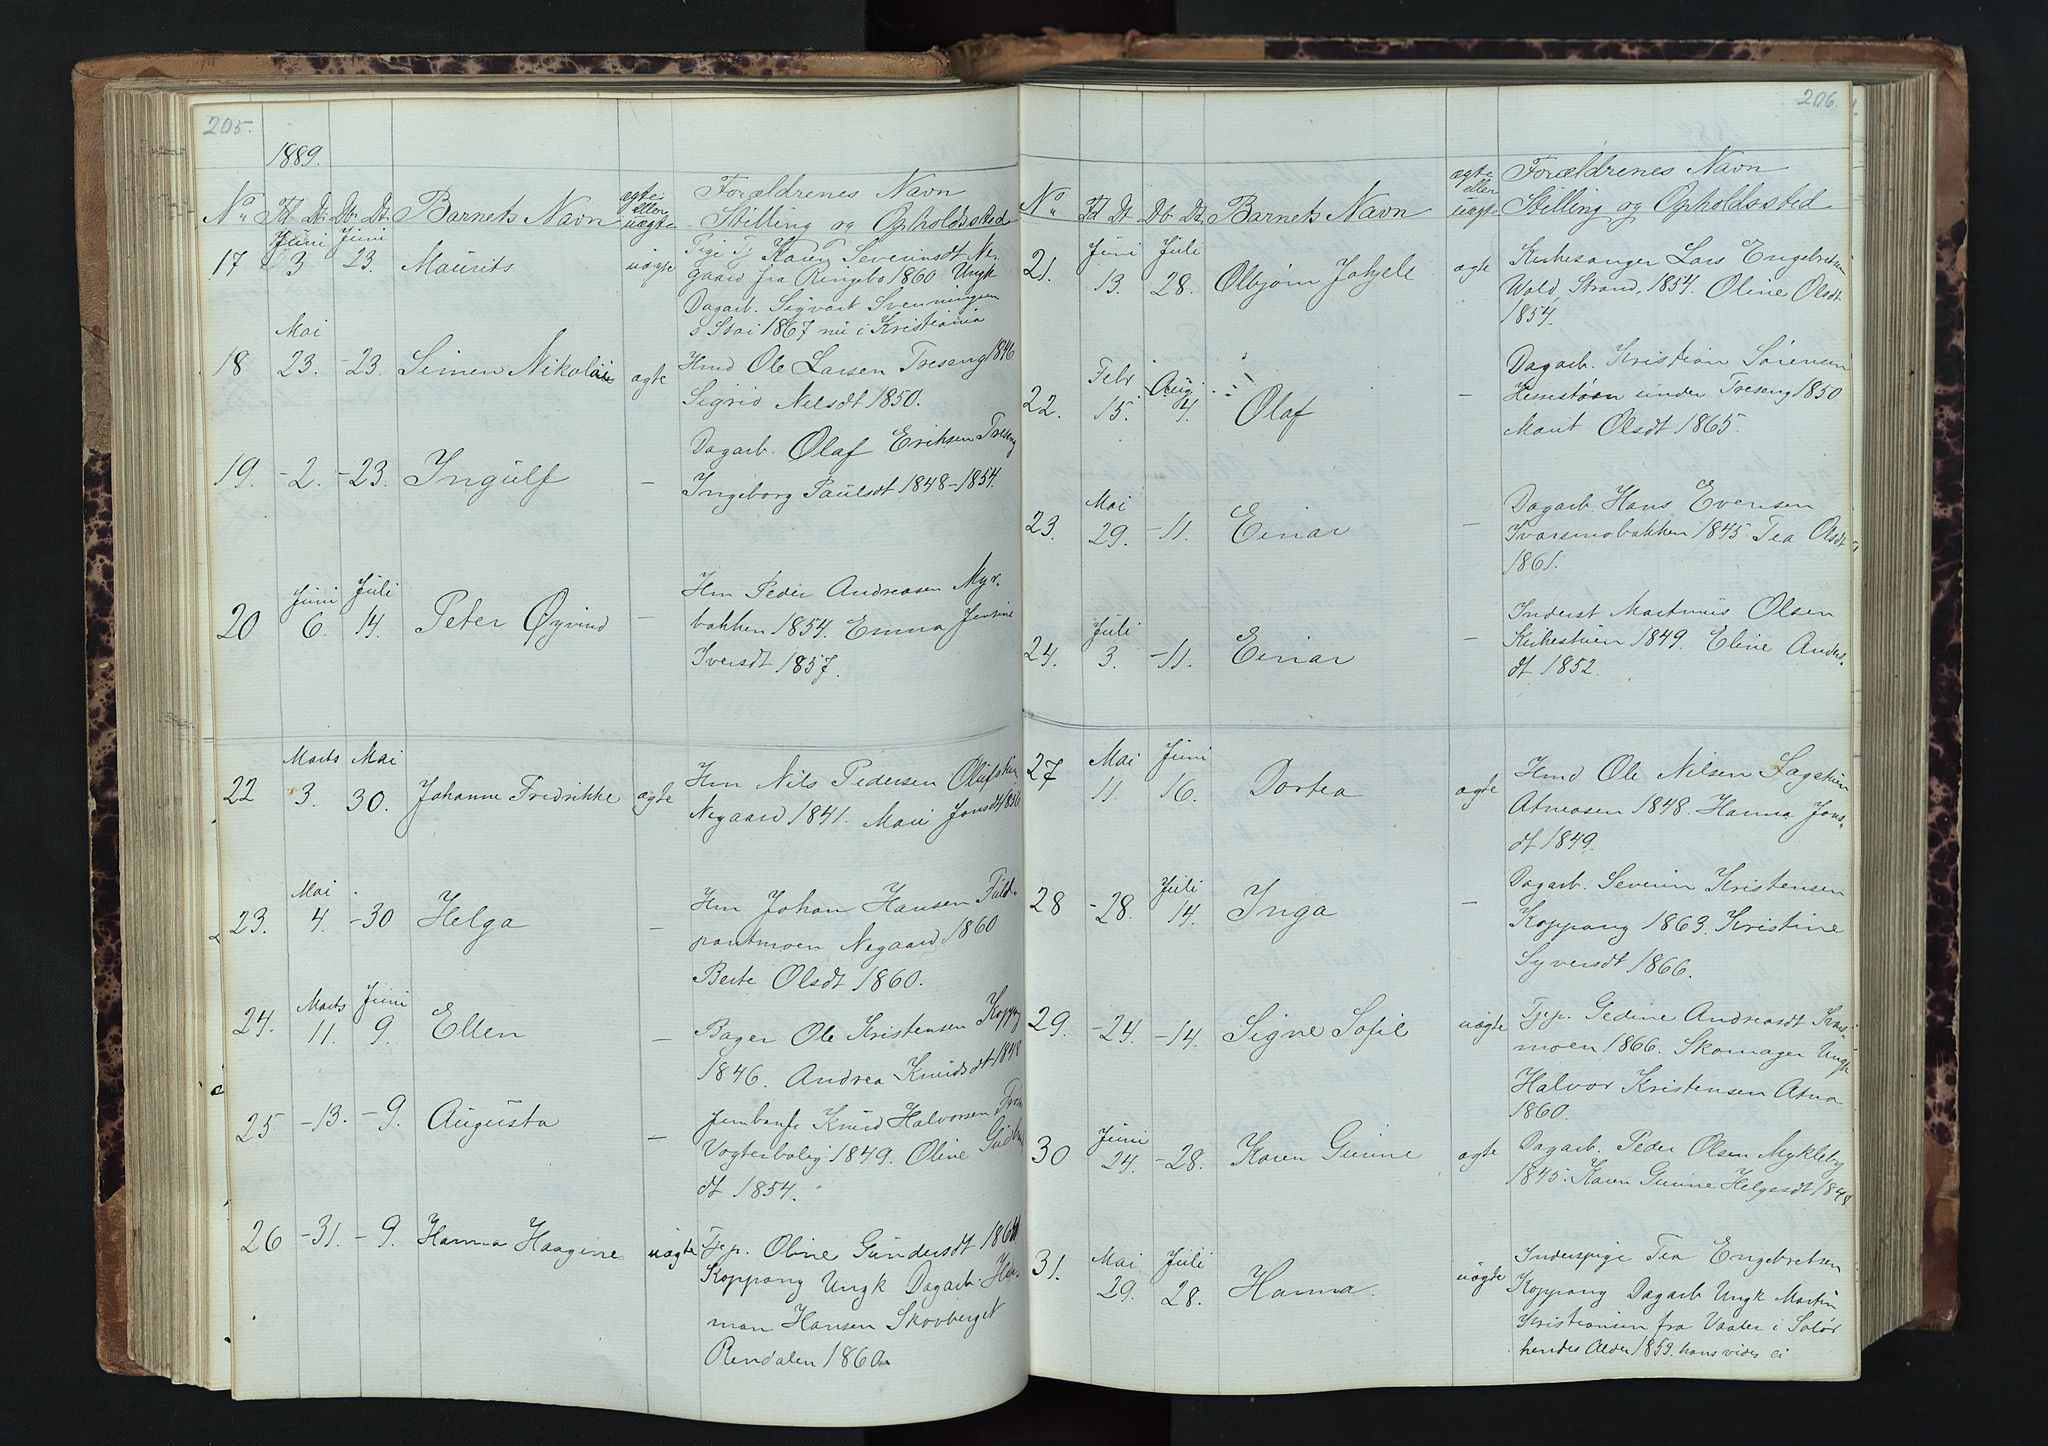 205.
1889.
No Fd Dt. Db Dt. Barnets Navn ægte eller uægte Forældrenes Navn
Stilling og Opholdssted
Juni Juni
17 3 23. Maurits uægte Pige Tj Karen Severinsdt Ne-
gaard fra Ringebo 1860 Ungk
Dagarb. Sigvart Svenningsen
Stai 1867 nu i Kristiania
Mai
18 23. -23. Simen Nikolai ægte Hmd Ole Larsen Treseng 1846
Sigrid Nilsdt 1850.
19. -2. -23. Ingulf - Dagarb. Olaf Eriksen Treseng
Ingeborg Paulsdt 1848-1854.
Juni Juli
20 6. 14. Peter Øyvind - Hm Peder Andreasen Myr-
bakken 1854. Emma Jensine
Iversdt 1857.
Marts Mai
22 3. 30. Johanne Fredrikke ægte Hm Nils Pedersen
Negaard 1841. Mari Jonsdt 1856
Mai
23. 4. -30 Helga - Hm Johan Hansen Fuld-
Negaard. 1860
Berte Olsdt 1860.
Marts Juni
24. 11. 9. Ellen - Bager Ole Kristensen Koppang
1846. Andrea Knudsdt 1848
25 -13. -9. Augusta - Jernbanf. Knud Halvorsen
Vogterbolig 1849. Oline
dt 1854.
26 -31. -9. Hanna Haagine uægte Tjp. Oline Gundersdt
Koppang Ungk Dagarb. Her-
man Hansen Skovberget
Rendalen 1860.
206.
No Fd Dt. Db Dt. Barnets Navn ægte eller uægte Forældrenes Navn
Stilling og Opholdssted
Juni Juli
21. 13. 28. Olbjørn ægte Kirkesanger Lars Engebretsen
Wold, Strand, 1854. Oline Olsdt
1854.
Febr Aug
22. 15. 4. Olaf - Dagarb. Kristian Sørensen
under Treseng 1850
Marit Olsdt 1865.
Mai
23. 29. -11. Einar - Dagarb. Hans Evensen
Ivarsmobakken 1845. Tea Olsdt
1861.
Juli
24. 3. -11. Einar - Inderst Martinus Olsen
Kirkestuen 1849. Eline Anders-
dt 1852.
Mai Juni
27 11. 16. Dortea ægte Hmd Ole Nilsen Sagstuen
Atneosen 1848. Hanna Jons-
dt 1849.
Juli
28 -28. 14. Inga - Dagarb. Severin Kristensen
Koppang 1863. Kristine
Syversdt 1866.
29. -24. -14. Signe Sofie uægte Tjp. Gedine Andreasdt
moen 1866. Skomager Ungk
Halvor Kristensen Atna
1860.
Juni
30 24. -28. Karen Gunine ægte Dagarb. Peder Olsen Mykleby
1845. Karen Gunine Helgesdt 1848
Mai Juli
31. 29. 28. Hanna. uægte Inderspige Tea Engebretsen
Koppang Dagarb Ungk Martin
Kristiansen fra Vaaler i Solør
hendes Alder 1859. hans vides ei